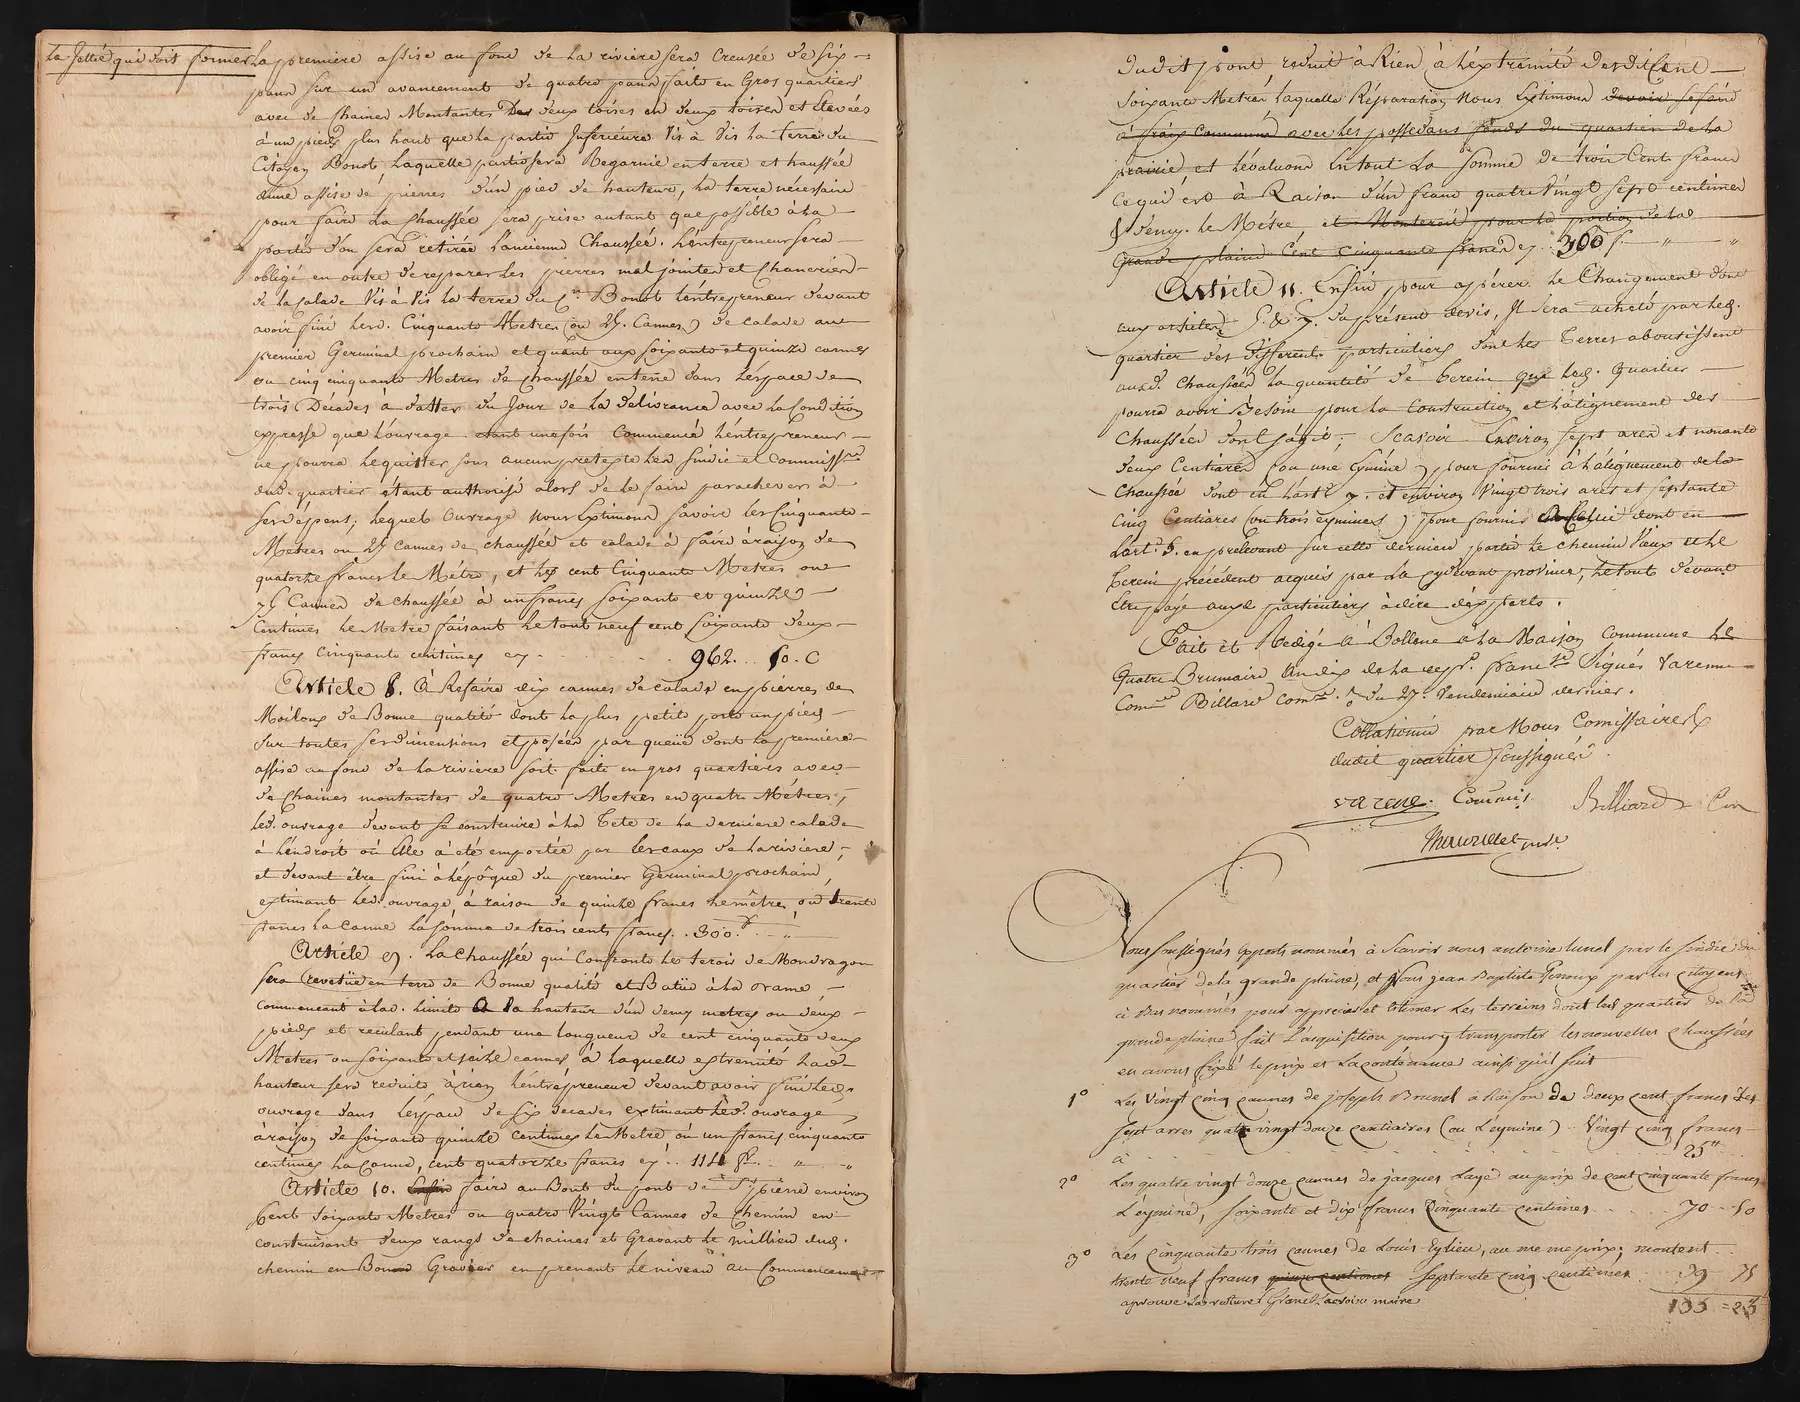 la Jettée qui doit former la premiere assise au fond de la riviere sera Creusée de six
pans sur un avancement de quatre pans faite en Gros quartiers
avec de chaines Montantes Des deux toises en deux toises et Elevées
à un pied plus haut que la partie Inferieure Vis à Vis la terre du
Citoyen Bonot Laquelle partie sera Regarnie en terre et haussée
dune assise de pierres d'un pied de hauteur, la terre nécessaire
pour faire la Chaussée sera prise autant que possible à la
partie d'ou sera retirée l'ancienne Chaussée. L'entrepreneur sera
obligé en outre de reparer les pierres mal jointes et
de la Calade Vis à Vis la terre du Cn. Bonot l'entrepreneur devant
avoir fini lesd. Cinquante Metres (ou 25. Cannes) de calade au
premier Germinal prochain et quant aux soixante et quinze cannes
ou cinquante Metres de chaussée en terre dans l'espace de
trois Décades à datter du Jour de la délivrance avec la Condition
expresse que l'ouvrage étant une fois Commencé l'entrepreneur
ne pourra le quitter sous aucun pretexte les sindic et Commissres
dud. quartier étant authorisé alors de le faire parachever à
ses dépens; lequel Ouvrage nous Extimons savoir les Cinquante
Metres ou 25 Cannes de chaussée et calade à faire à raison de
quatorze francs le Métre, et les cent Cinquante Metres ou
75 Cannes de chaussée à un franc soixante et quinze
Centimes le Metre faisant le tout neuf cent soixante deux
francs cinquante centimes cy 962... 50. C
Article 8. à Refaire dix cannes de calade en pierres de
Moilons de Bonne qualité dont la plus petite porte un pied
sur toutes ses dimensions et posées par queüe dont la premiere
assise au fond de la riviere soit faite en gros quartiers avec
de chaines montantes de quatre Metres en quatre Métres,
led. ouvrage devant se construire à la Tete de la derniere calade
à l'endroit où Elle a été emportée par les eaux de la riviere,
et devant être fini à l'époque du premier Germinal prochain,
extimant led. ouvrage à raison de quinze francs le métre ou trente
francs la Canne la somme de trois cents francs. . 300. f
Article 9. La Chaussée qui Confronte le terois de Mondragon
sera revetüe en terre de Bonne qualité et Batie à la Dame,
commencant à lad. limite à la hauteur d'un demy metres ou deux
pieds et reculant pendant une longueur de cent cinquante deux
Metres ou soixante et seize cannes à laquelle extremité lad.
hauteur sera reduite à rien l'entrepreneur devant avoir fini led.
ouvrage dans l'espace de six decades extimant led. ouvrage
à raison de soixante quinze centimes le Metre, ou un franc cinquante
centimes la Canne, cent quatorze francs cy.. 114 f.
Article 10. Enfin faire au Bout du pont de St. pierre environ
Cent Soixante Metres ou quatre Vingt Cannes de Chemin en
construisant deux rangs de chaines et Gravant le millieu dud.
chemin en Bon Gravier en prenant le niveau au Commencement
dudit pont réduit à Rien à l'extremité desdit Cent
soixante Metres laquelle Réparation Nous Extimons devoir se faire
à fraix Communs avec les possedans fonds du quartier de la
prairie et l'évaluons en tout la somme de trois Cent francs
ce qui est à Raison d'un franc quatre Vingt sept centimes
& demy. le Métre, et Monterait pour la portion de la
Grande plaine Cent Cinquante francs cy . 300 f
Article 11. Enfin pour opérer le Changement dont
aux articles 5. & 7. du présent devis, Il sera acheté par led.
quartier des differents particuliers dont les Terres aboutissent
auxd. Chaussées la quantité de terein que led. Quartier
pourra avoir Besoin pour la construction et l'alignement des
Chaussées dont s'agit; Scavoir Environ sept ares et nonante
deux Centiares (ou une Eymine) pour fournir à l'alignement de la
Chaussée dont en l'artle 7. et environ Vingt trois ares et septante
Cinq Centiares (ou trois eymines) pour fournir à Celui dont en
l'art. 5. en prelevant sur cette derniere partie le chemin Vieux et le
terein précédent acquis par la cydevant province, le tout devant
être payé auxd particuliers à dire d'experts.
Fait et Redigé à Bollene à la Maison Commune le
Quatre Brumaire an dix de la rep. francse Signés Varenne
Comre Billard comre. du 27. Vendemiaire dernier.
Collationné par Nous Comissaires
dudit quartier soussignés
varene. Commis. Billiard
Nous soussignés Experts nommés à Scavoir nous antoine lunel par le sindic du
quartier de la grande plaine, et Nous jean Baptiste Genoux par les Citoyens
ci bas nommés pour apprecier et estimer Les terreins dont led quartier de la
grande plaine fait l'acquisition pour y transporter les nouvelles chaussées
en avons fixé le prix et la contenance ainsi qu'il suit
1° Les Vingt cinq cannes de joseph Brunel à Raison de deux cent francs les
sept arres quatre vingt douze centiaires (ou l'eymine) Vingt cinq francs
ci 25
2° Les quatre vingt douze cannes de jacques Layé au prix de cent cinquante francs
L'eymine, soixante et dix francs Cinquante centimes 70 50
3° Les Cinquante trois cannes de Louis Eylieu, au meme prix; montent
trente neuf francs quinze centimes septante cinq centimes 39 75
aprouve La rature
135 = 25